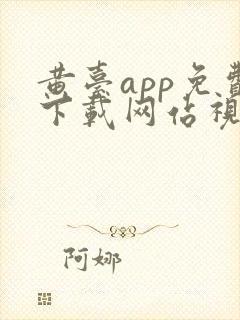 黄臺app免費
下載网佔視
阿娜